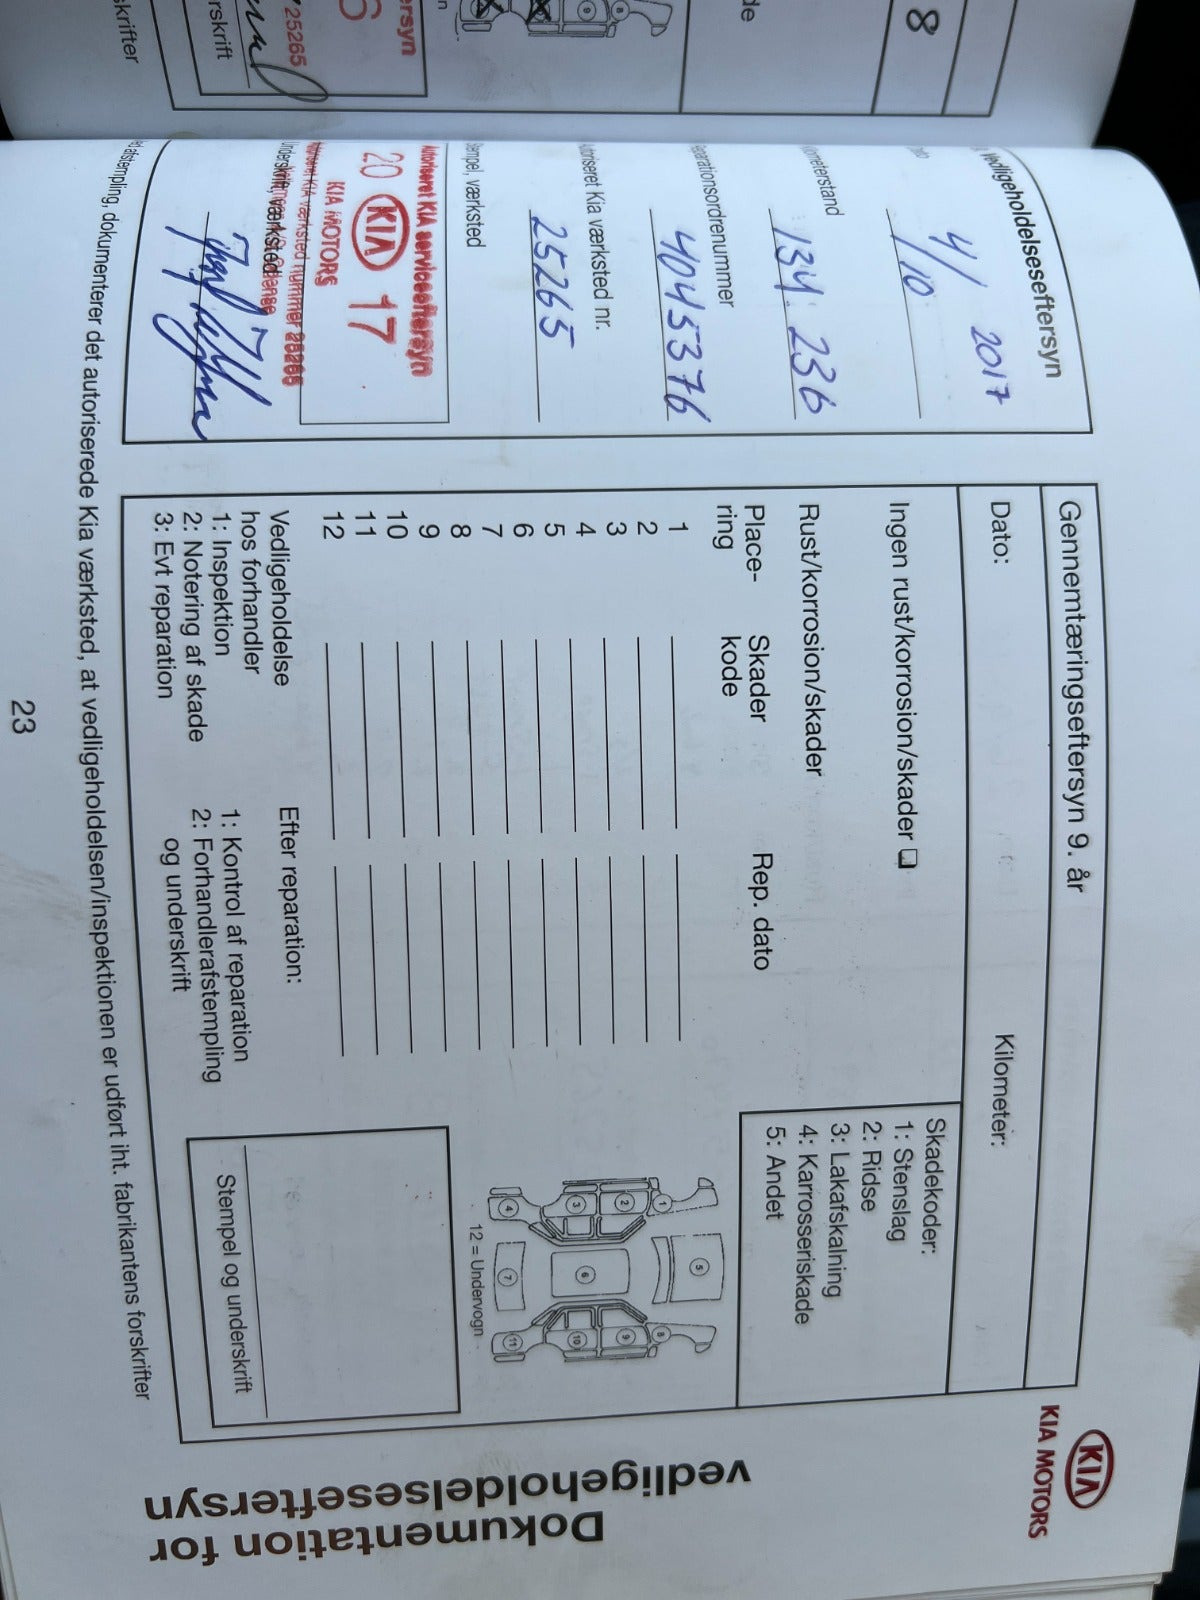 8
de
25265
KIA MOTORS
Dokumentation for
vedligeholdelseseftersyn
vedligeholdelseseftersyn
4/10 2017
ometerstand
134.236
eparationsordrenummer
4045376
utoriseret Kia værksted nr.
25265
tempel, værksted
Autoriseret KIA serviceeftersyn
20 KIA 17
KIA MOTORS
Autoriseret KIA værksted nummer 25265
Underskrift, værksted
Gennemtæringseftersyn 9. år
Dato:
Kilometer:
Ingen rust/korrosion/skader ❑
Rust/korrosion/skader
Skadekoder:
1: Stenslag
2: Ridse
3: Lakafskalning
4: Karrosseriskade
5: Andet
Place-
ring
Skader
kode
Rep. dato
1
2
3
4
5
6
7
8
9
10
11
12
1 2 3 4 5 6 7 8 9 10 11
12 = Undervogn
Vedligeholdelse
hos forhandler
1: Inspektion
2: Notering af skade
3: Evt reparation
Efter reparation:
1: Kontrol af reparation
2: Forhandlerafstempling
og underskrift
Stempel og underskrift
afstempling, dokumenterer det autoriserede Kia værksted, at vedligeholdelsen/inspektionen er udført iht. fabrikantens forskrifter
23